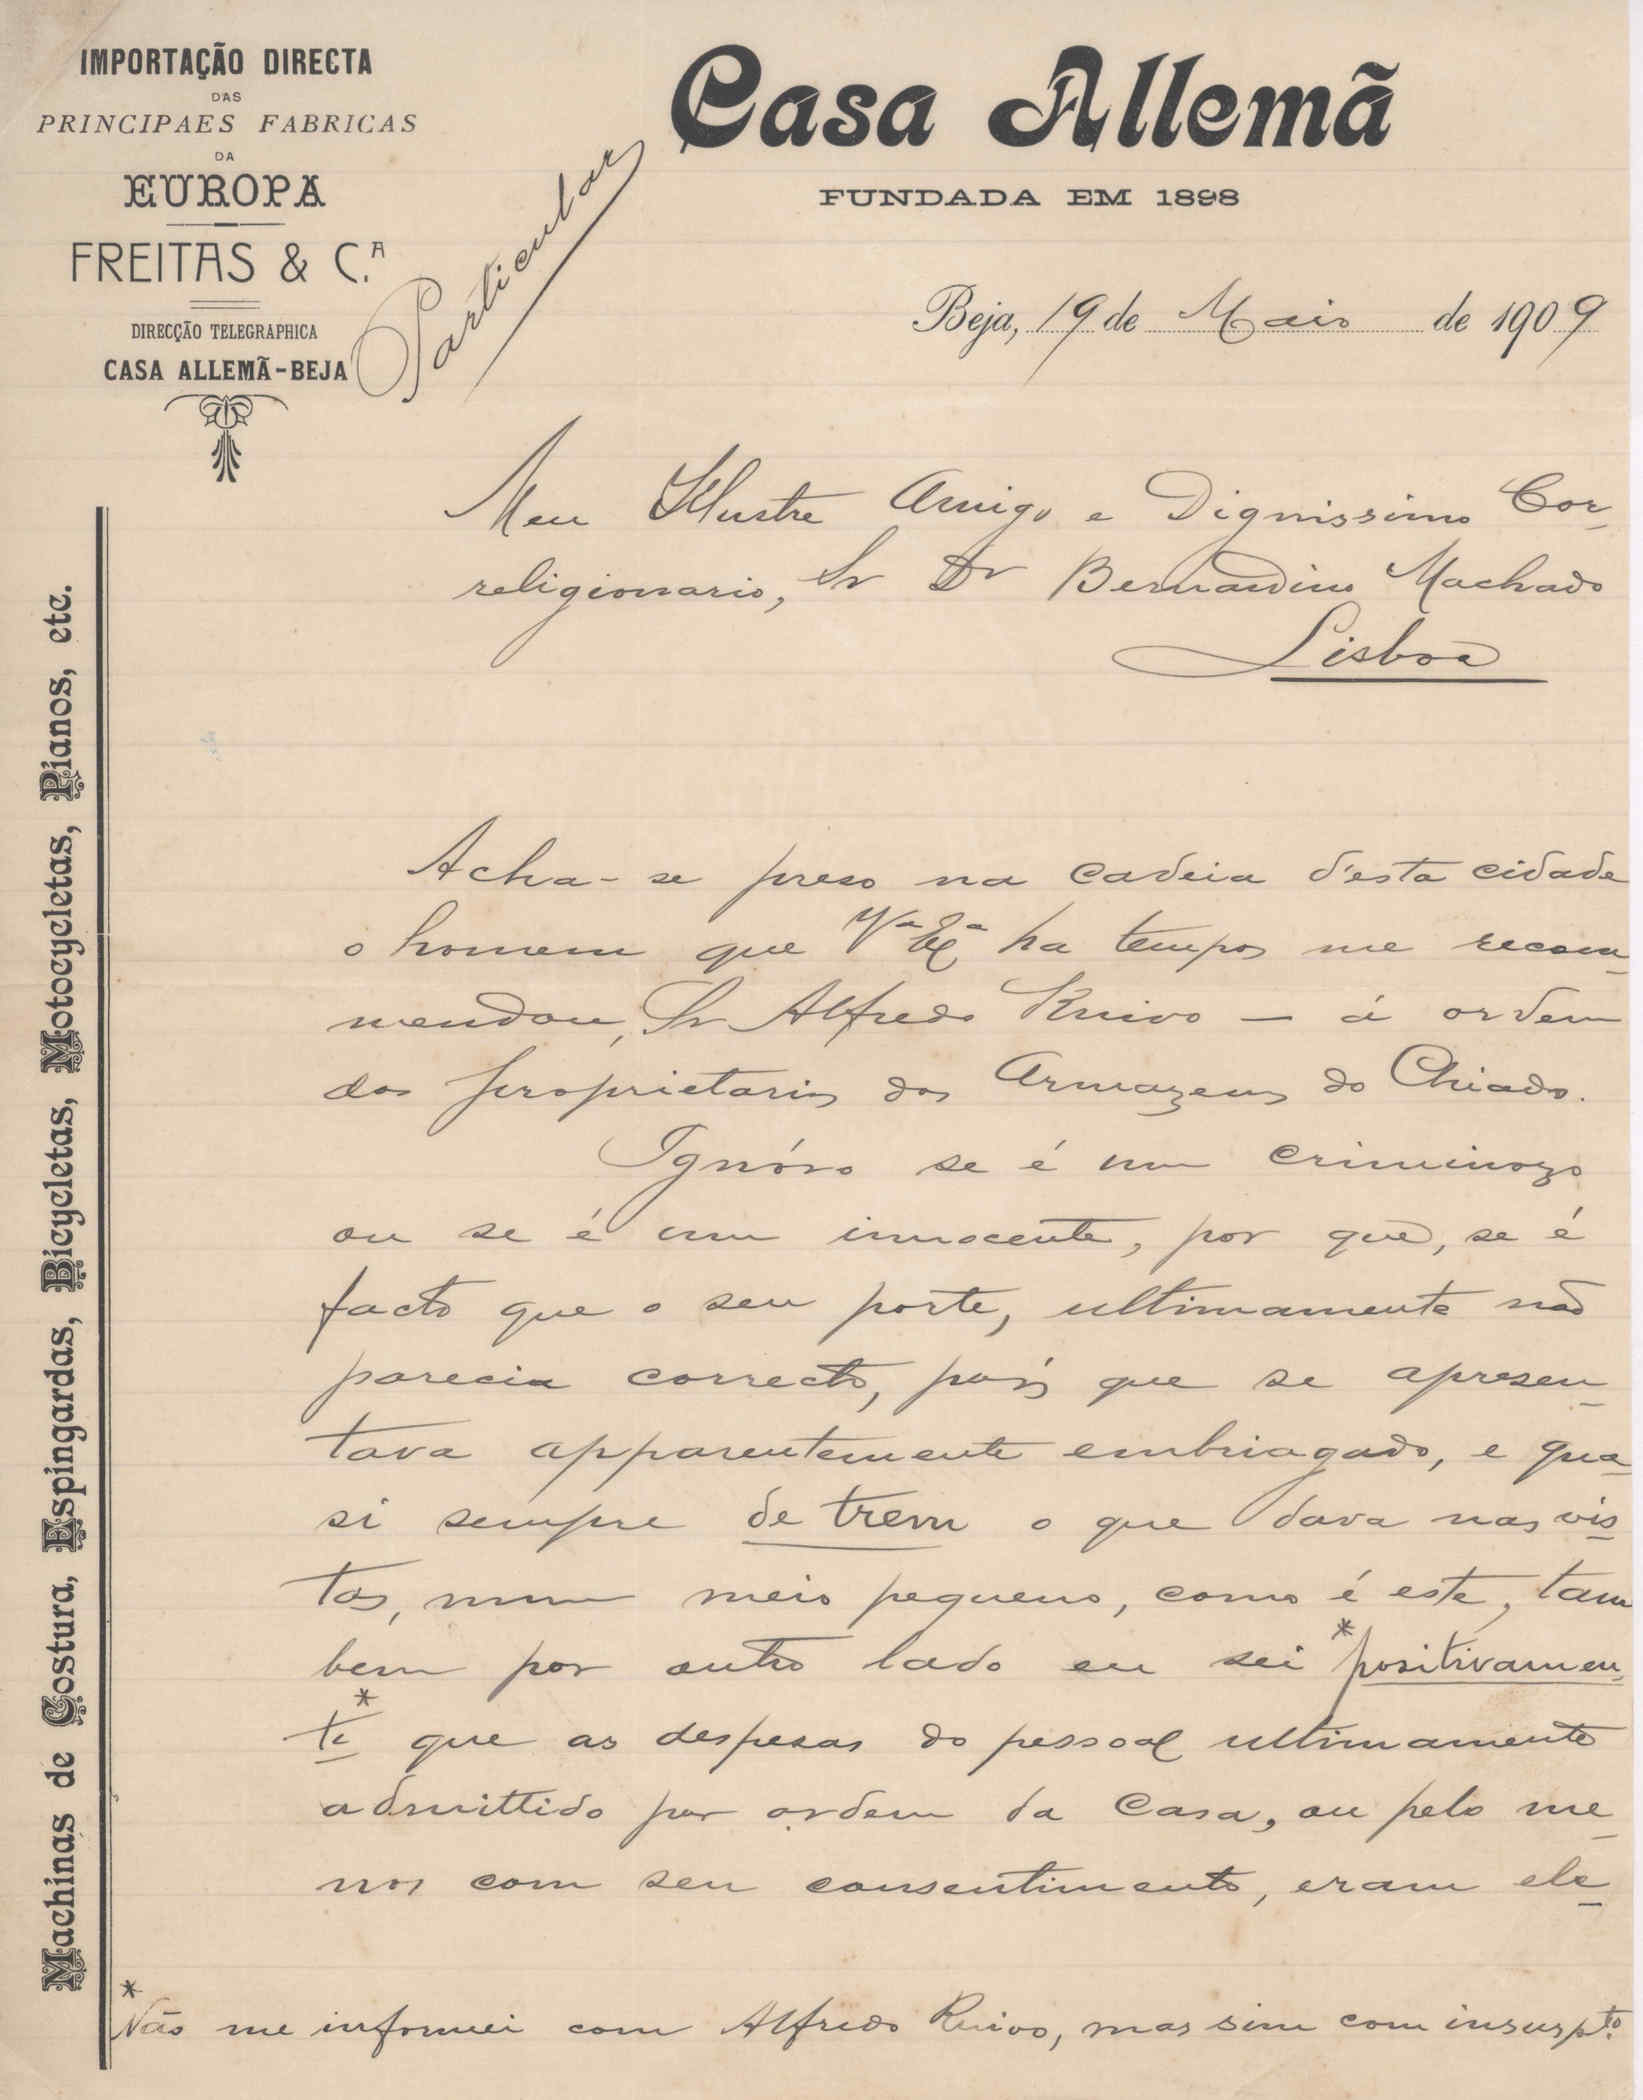 IMPORTAÇÃO DIRECTA
DAS
PRINCIPAES FABRICAS
DA
EUROPA
FREITAS & C.A
DIRECÇÃO TELEGRAPHICA
CASA ALLEMÃ-BEJA
Particular
Casa Allemã
FUNDADA EM 1898
Beja, 19 de Maio de 1909
Meu Illustre Amigo e Dignissimo Cor-
religionario, Sr Dr Bernardino Machado
Lisboa
Machinas de Costura, Espingardas, Bicycletas, Motocycletas, Pianos, etc.
Acha-se preso na cadeia d'esta cidade
o homem que Vª Exª ha tempos me recom-
mendou, Sr Alfredo Ruivo — á ordem
dos proprietarios dos Armazens do Chiado.
Ignóro se é um criminozo
ou se é um innocente, por que, se é
facto que o seu porte, ultimamente não
parecia correcto, pois que se apresen-
tava apparentemente embriagado, e qua-
si sempre de trem o que dava nas vis-
tas, num meio pequeno, como é este, tam
bem por outro lado eu sei *positivamen-
te* que as despesas do pessoal ultimamente
admittido por ordem da Casa, ou pelo me-
nos com seu consentimento, eram ele-
*Não me informei com Alfredo Ruivo, mas sim com insuspto